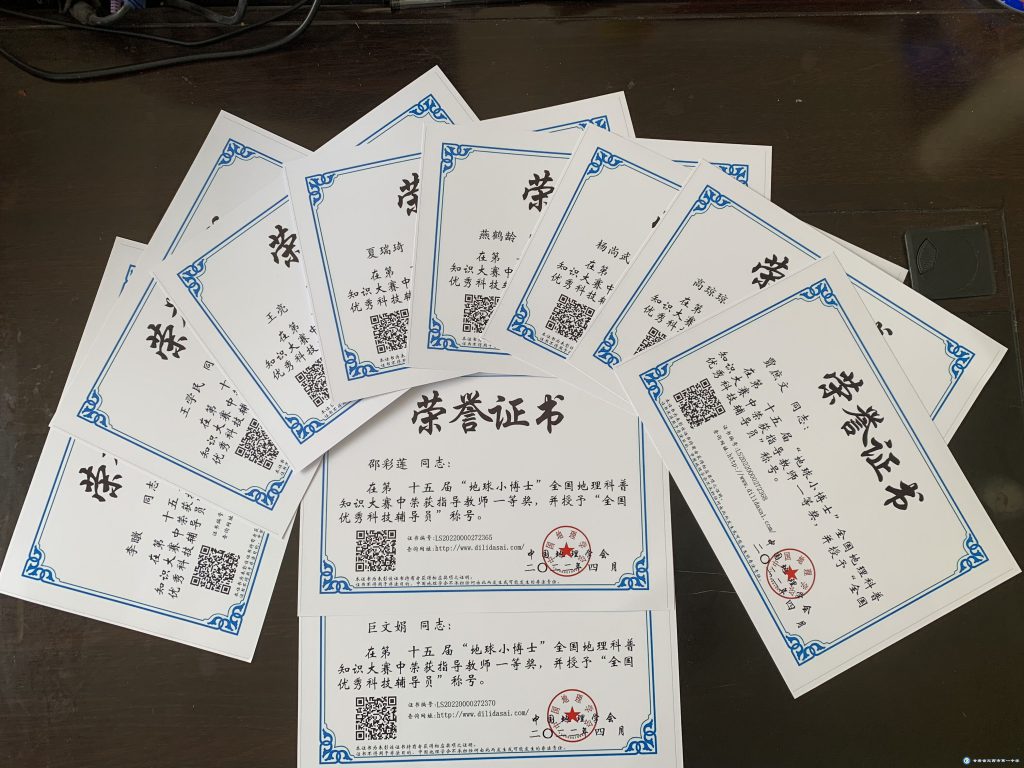 荣
李敬 同志
在第 十五
知识大赛中荣获
优秀科技辅导员
证书编号
查询网址
荣
王学民 同
在第 十
知识大赛中
优秀科技辅
荣
王亮
在第
知识大赛中
优秀科技
荣
夏瑞琦
在第
知识大赛中
优秀科技辅
荣
燕鹤龄
在第
知识大赛中
优秀科技辅
杨尚武
在第
知识大赛
优秀科技
荣
高琼琼
在第
知识大
优秀科
荣誉证书
贾燕文 同志:
在第 十五届“地球小博士”全国地理科普
知识大赛中荣获指导教师一等奖,并授予“全国
优秀科技辅导员”称号。
查询网址:http://www.dilidasai.com/
中国地理学会
二〇二二年四月
荣誉证书
邵彩莲 同志:
在第 十五届“地球小博士”全国地理科普
知识大赛中荣获指导教师一等奖,并授予“全国
优秀科技辅导员”称号。
证书编号:LS20220000272365
查询网址:http://www.dilidasai.com/
中国地理学会
二〇二二年四月
巨文娟 同志:
在第 十五届“地球小博士”全国地理科普
知识大赛中荣获指导教师一等奖,并授予“全国
优秀科技辅导员”称号。
证书编号:LS20220000272370
查询网址:http://www.dilidasai.com/
中国地理学会
二〇二二年四月